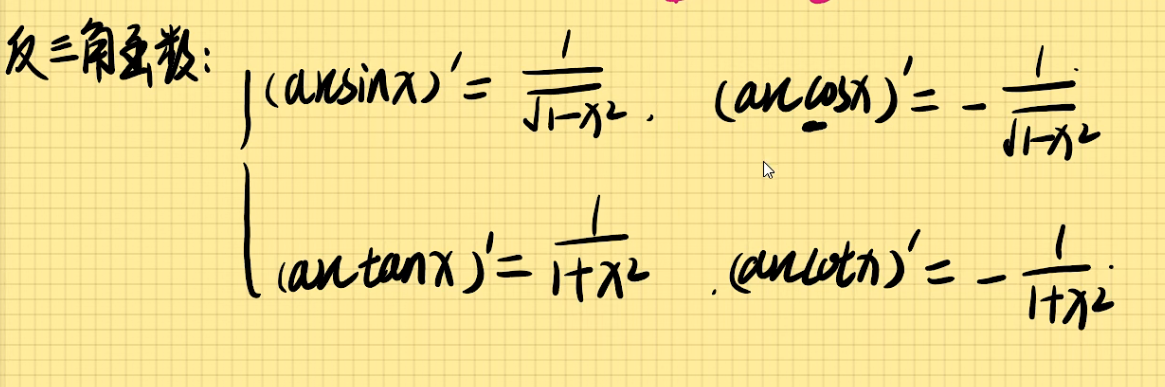 反三角函数:
(arcsinx)' = 1/√(1-x²). (arccosx)' = - 1/√(1-x²)
(arctanx)' = 1/(1+x²) (arccotx)' = - 1/(1+x²)